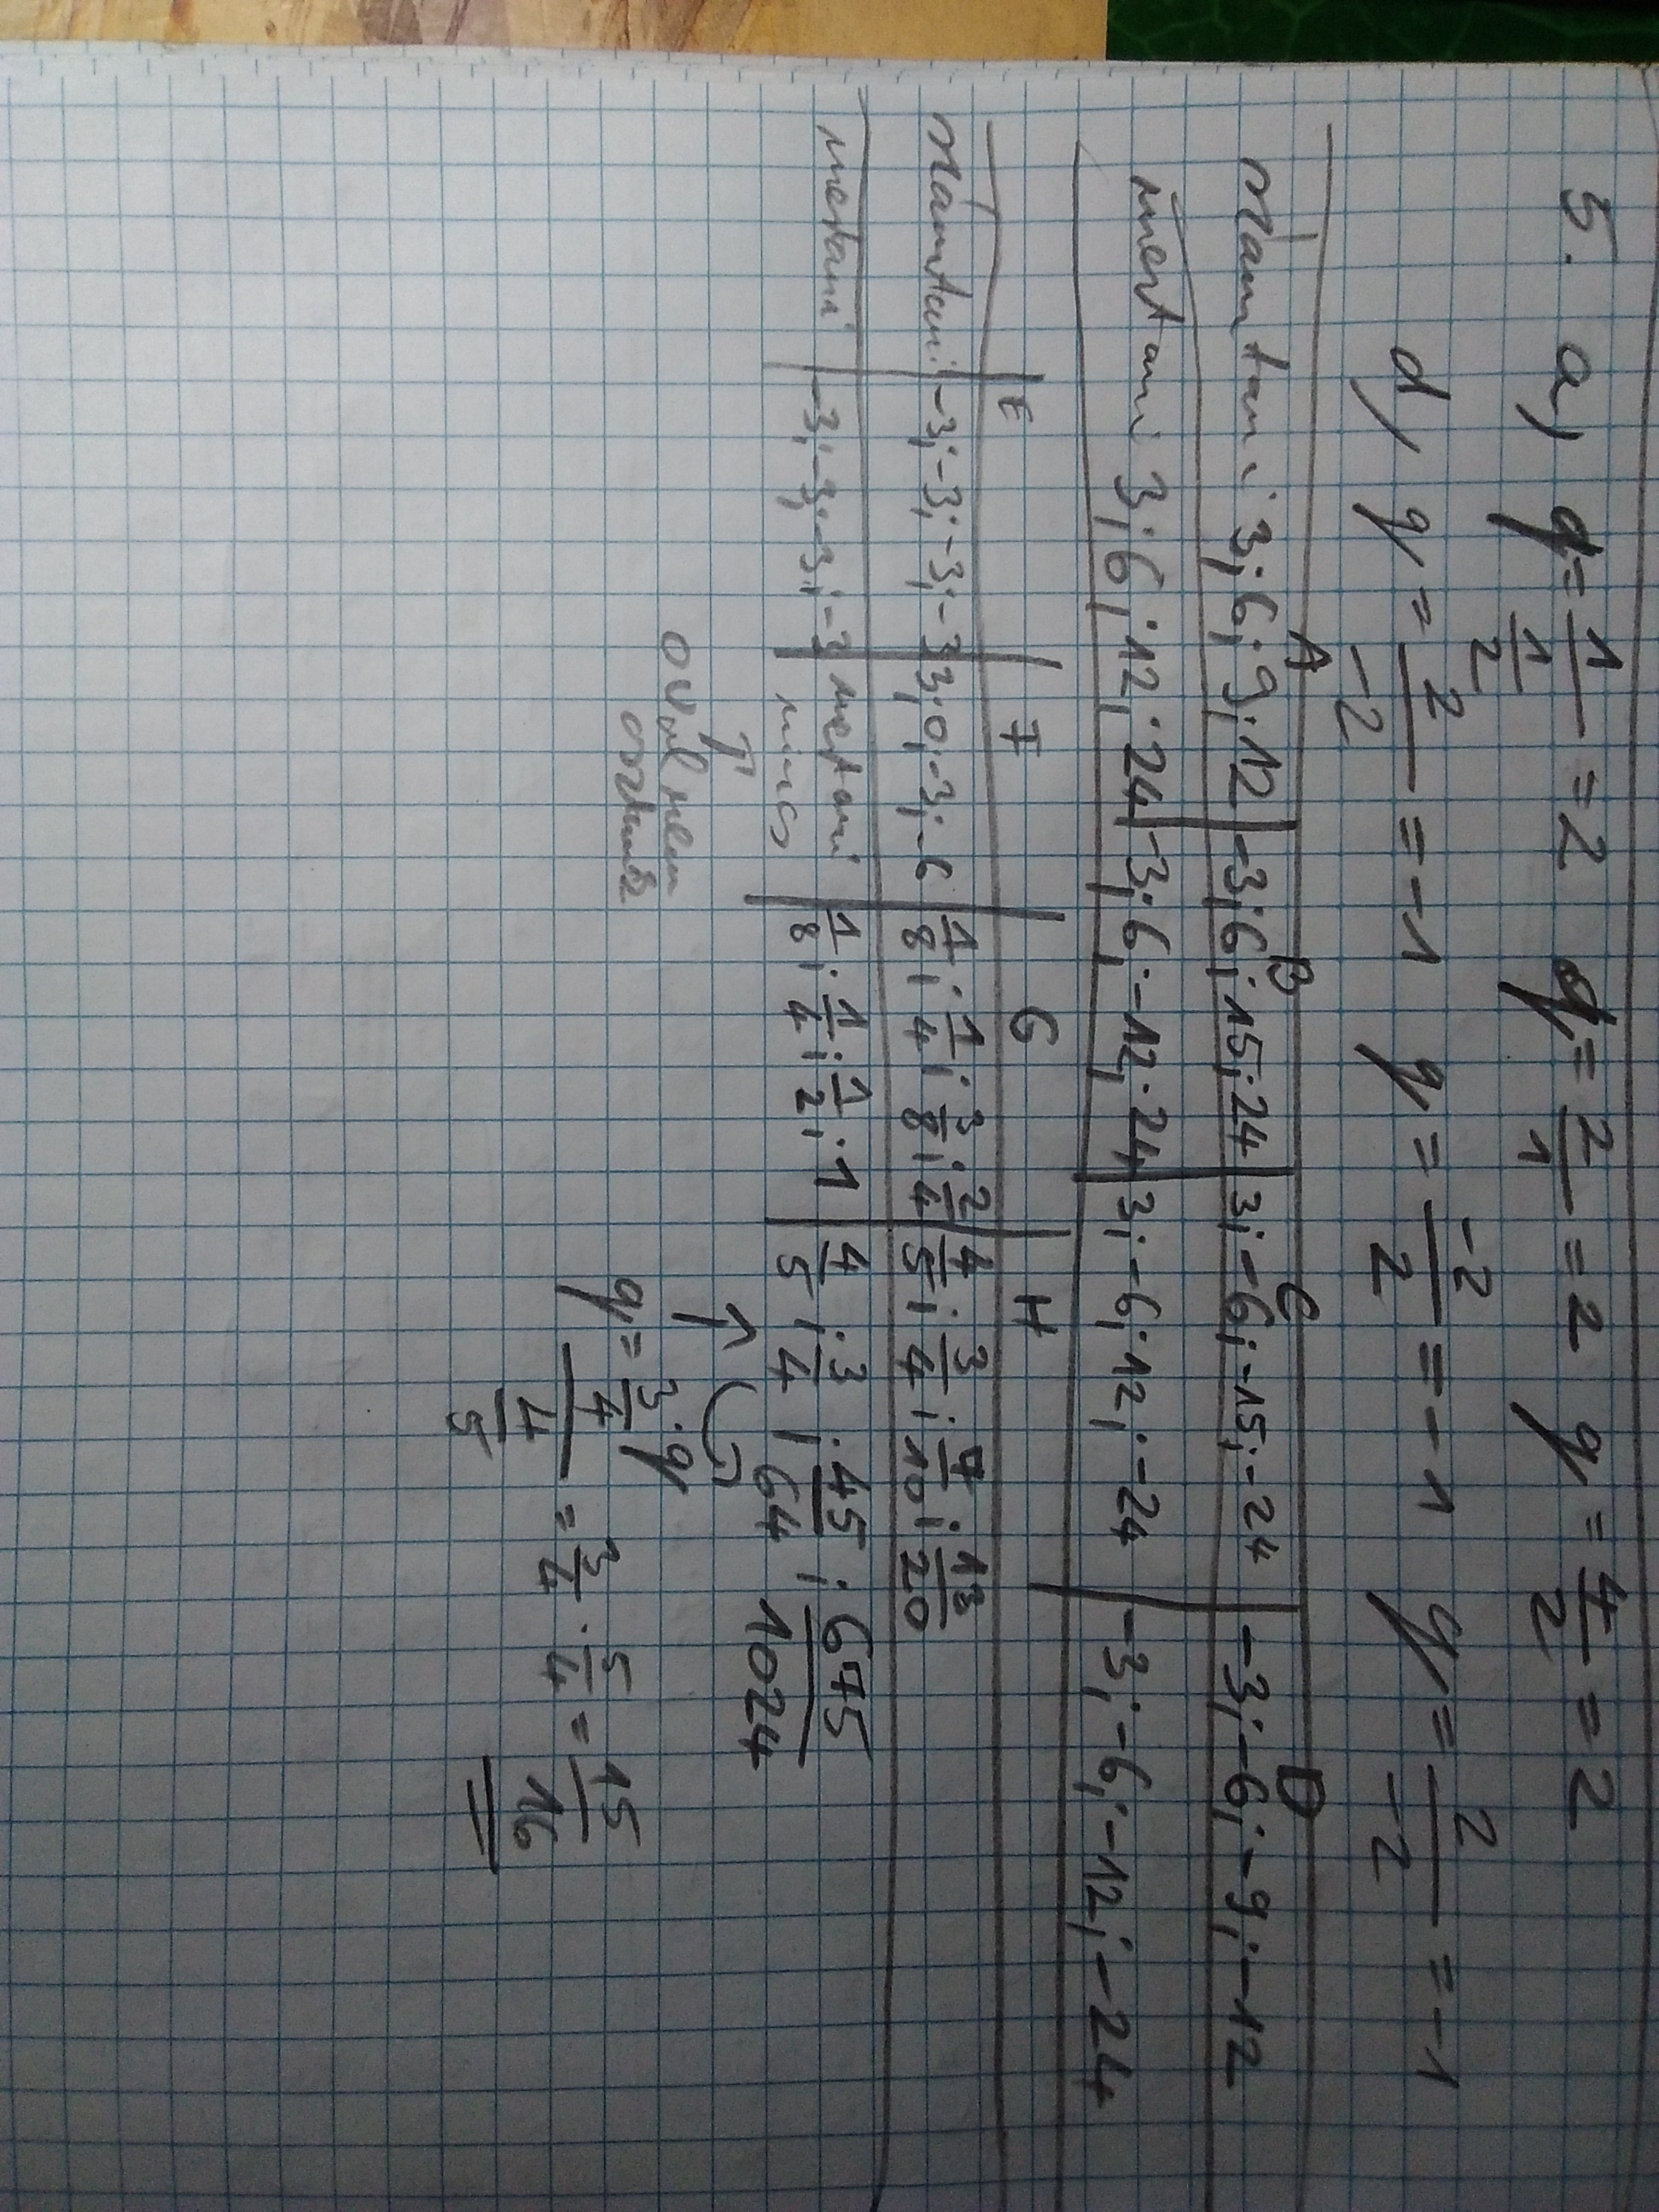 5. a) q = 1 / (1/2) = 2 q = 2/1 = 2 q = 4/2 = 2
d) q = 2/-2 = -1 q = -2/2 = -1 q = 2/-2 = -1
A B C D
számtani 3; 6; 9; 12 -3; 6; 15; 24 3; -6; -15; -24 -3; -6; -9; -12
mértani 3; 6; 12; 24 -3; 6; -12; 24 3; -6; 12; -24 -3; -6; -12; -24
E F G H
számtani -3; -3; -3; -3 3; 0; -3; -6 1/8; 1/4; 3/8; 2/4 4/5; 3/4; 7/10; 13/20
mértani -3; -3; -3; -3 mértani 1/8; 1/4; 1/2; 1 4/5; 3/4; 45/64; 675/1024
nincs
↑ ↑
0-val nem q = 3/4 / (4/5) = 3/4 · 5/4 = 15/16
osztunk ·q